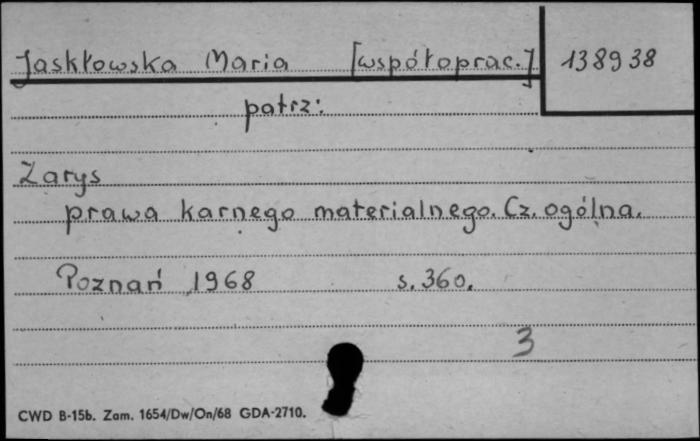 Jaskłowska Maria [współoprac.] 138938
patrz:
Zarys
prawa karnego materialnego. Cz. ogólna.
Poznań 1968 s. 360.
3
CWD B-15b. Zam. 1654/Dw/On/68 GDA-2710.